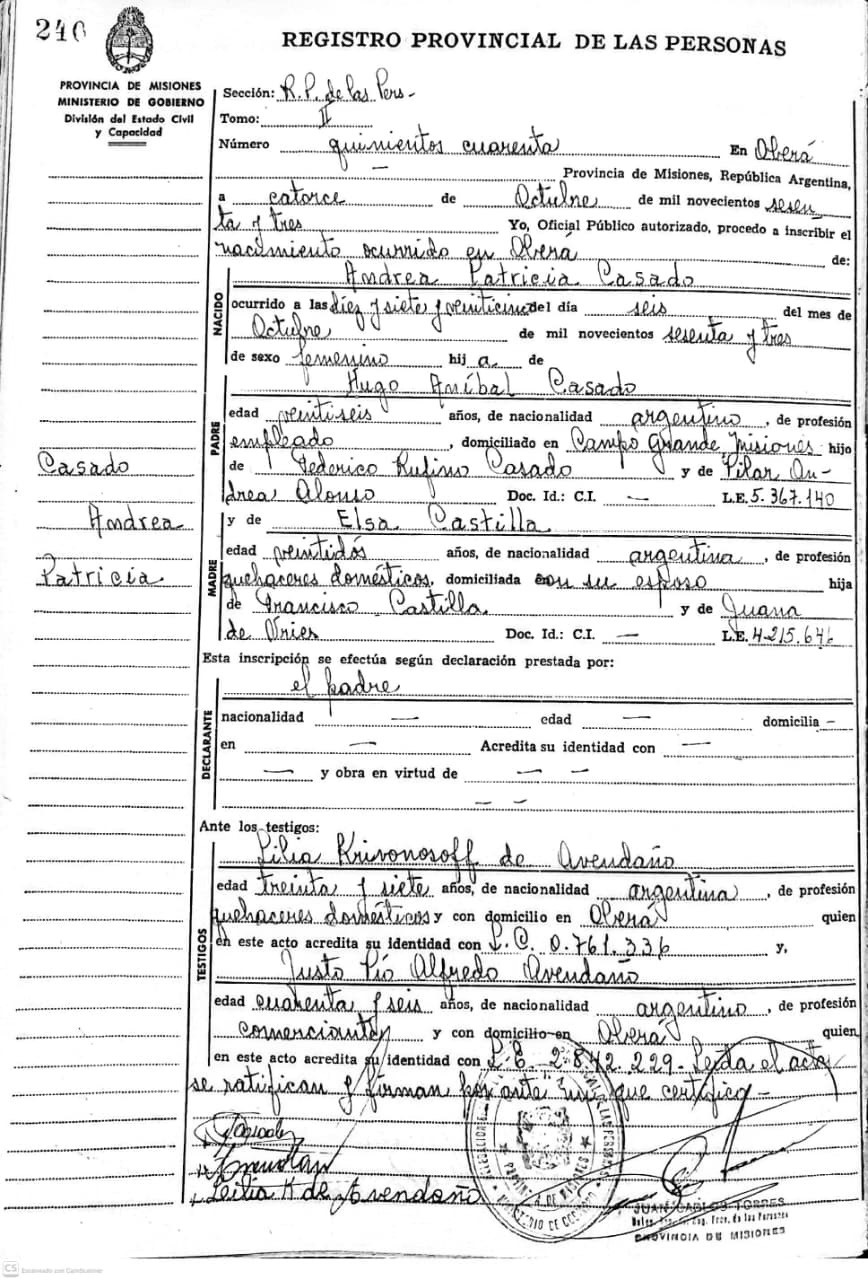 240
REGISTRO PROVINCIAL DE LAS PERSONAS
PROVINCIA DE MISIONES
MINISTERIO DE GOBIERNO
División del Estado Civil
y Capacidad
Sección: R.P. de las Pers -
Tomo: II
Número quinientos cuarenta En Oberá
— Provincia de Misiones, República Argentina,
a catorce de Octubre de mil novecientos sesen
ta y tres Yo, Oficial Público autorizado, procedo a inscribir el
nacimiento ocurrido en Oberá de:
NACIDO
Andrea Patricia Casado
ocurrido a las diez y siete y veinticinco del día seis del mes de
Octubre de mil novecientos sesenta y tres
de sexo femenino hij a de
PADRE
Hugo Aníbal Casado
edad veintiseis años, de nacionalidad argentino, de profesión
empleado, domiciliado en Campo Grande, Misiones hijo
de Federico Rufino Casado y de Pilar An-
drea Alonso Doc. Id.: C.I. — L.E. 5.367.140
Casado
Andrea
Patricia
MADRE
y de Elsa Castilla
edad veintidós años, de nacionalidad argentina, de profesión
quehaceres domésticos, domiciliada con su esposo hija
de Francisco Castilla y de Juana
de Vries Doc. Id.: C.I. — L.E. 4.215.646
Esta inscripción se efectúa según declaración prestada por:
DECLARANTE
el padre
nacionalidad — edad — domicilia -
en — Acredita su identidad con —
— y obra en virtud de — —
— —
Ante los testigos:
TESTIGOS
Lilia Krivonosoff de Avendaño
edad treinta y siete años, de nacionalidad argentina, de profesión
quehaceres domésticos y con domicilio en Oberá quien
en este acto acredita su identidad con L.C. 0.761.336 y,
Justo Pío Alfredo Avendaño
edad cuarenta y seis años, de nacionalidad argentino, de profesión
comerciante y con domicilio en Oberá quien
en este acto acredita su identidad con L.E. 2.842.229- Leída el acta
se ratifican y firman por ante mí que certifico -
Lilia K de Avendaño
JUAN CARLOS TORRES
PROVINCIA DE MISIONES
CS Escaneado con CamScanner